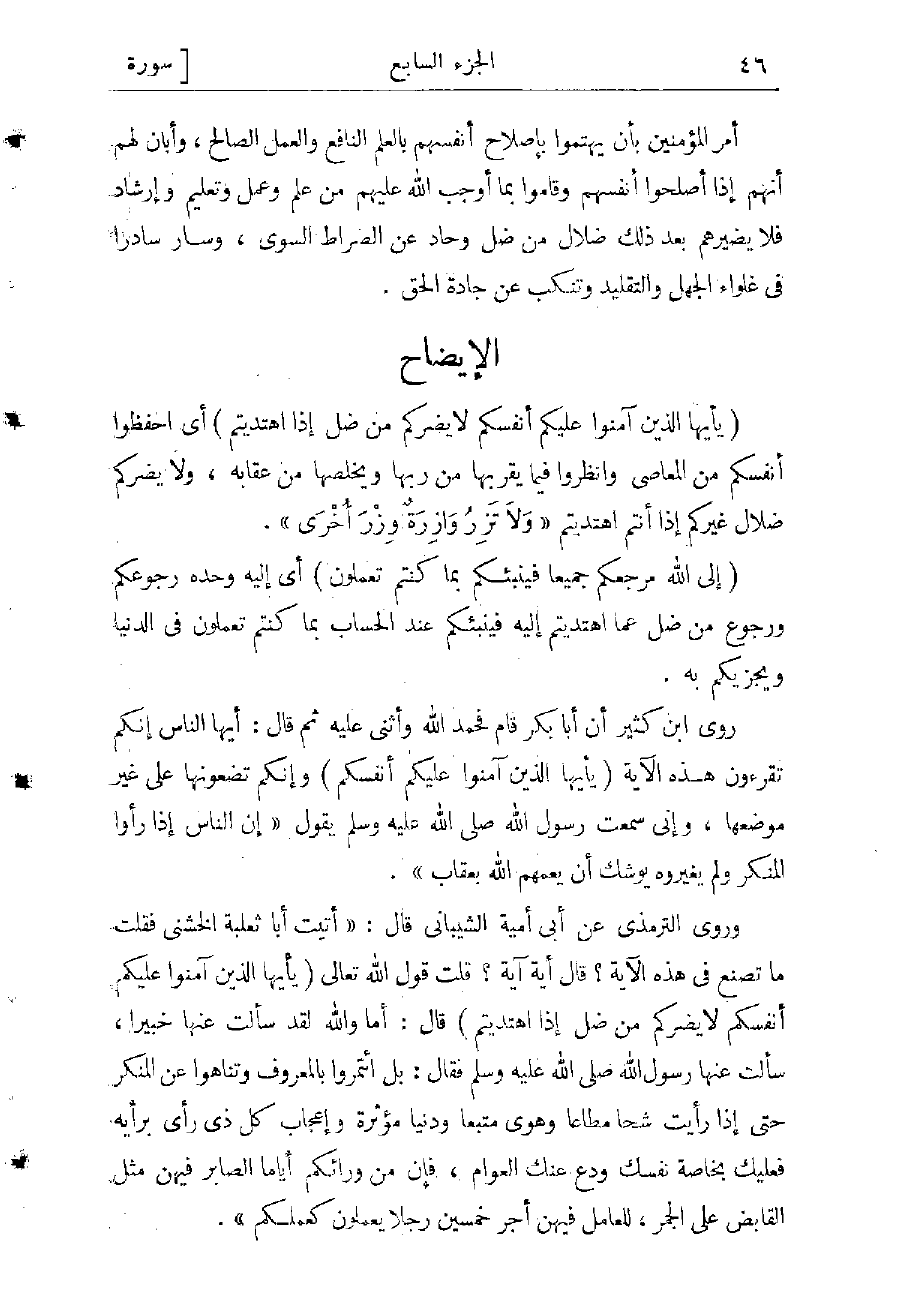 ٤٦ الجزء السابع [ سورة
أمر المؤمنين بأن يهتموا بإصلاح أنفسهم بالعلم النافع والعمل الصالح ، وأبان لهم
أنهم إذا أصلحوا أنفسهم وقاموا بما أوجب الله عليهم من علم وعمل وتعليم وإرشاد
فلا يضيرهم بعد ذلك ضلال من ضل وحاد عن الصراط السوى ، وسار سادرا
فى غلواء الجهل والتقليد وتنكب عن جادة الحق .
الإيضاح
( يأيها الذين آمنوا عليكم أنفسكم لايضركم من ضل إذا اهتديتم ) أى احفظوا
أنفسكم من المعاصى وانظروا فيما يقربها من ربها ويخلصها من عقابه ، ولا يضركم
ضلال غيركم إذا أنتم اهتديتم « وَلَا تَزِرُ وَازِرَةٌ وِزْرَ أُخْرَى » .
( إلى الله مرجعكم جميعا فينبئكم بما كنتم تعملون ) أى إليه وحده رجوعكم
ورجوع من ضل عما اهتديتم إليه فينبئكم عند الحساب بما كنتم تعملون فى الدنيا
ويجزيكم به .
روى ابن كثير أن أبا بكر قام فحمد الله وأثنى عليه ثم قال : أيها الناس إنكم
تقرءون هذه الآية ( يأيها الذين آمنوا عليكم أنفسكم ) وإنكم تضعونها على غير
موضعها ، وإنى سمعت رسول الله صلى الله عليه وسلم يقول « إن الناس إذا رأوا
المنكر ولم يغيروه يوشك أن يعمهم الله بعقاب » .
وروى الترمذى عن أبى أمية الشيبانى قال : « أتيت أبا ثعلبة الخشنى فقلت
ما تصنع فى هذه الآية ؟ قال أية آية ؟ قلت قول الله تعالى ( يأيها الذين آمنوا عليكم
أنفسكم لايضركم من ضل إذا اهتديتم ) قال : أما والله لقد سألت عنها خبيرا ،
سألت عنها رسول الله صلى الله عليه وسلم فقال : بل ائتمروا بالمعروف وتناهوا عن المنكر
حتى إذا رأيت شحا مطاعا وهوى متبعا ودنيا مؤثرة وإعجاب كل ذى رأى برأيه
فعليك بخاصة نفسك ودع عنك العوام ، فإن من ورائكم أياما الصابر فيهن مثل
القابض على الجمر ، للعامل فيهن أجر خمسين رجلا يعملون كعملكم » .